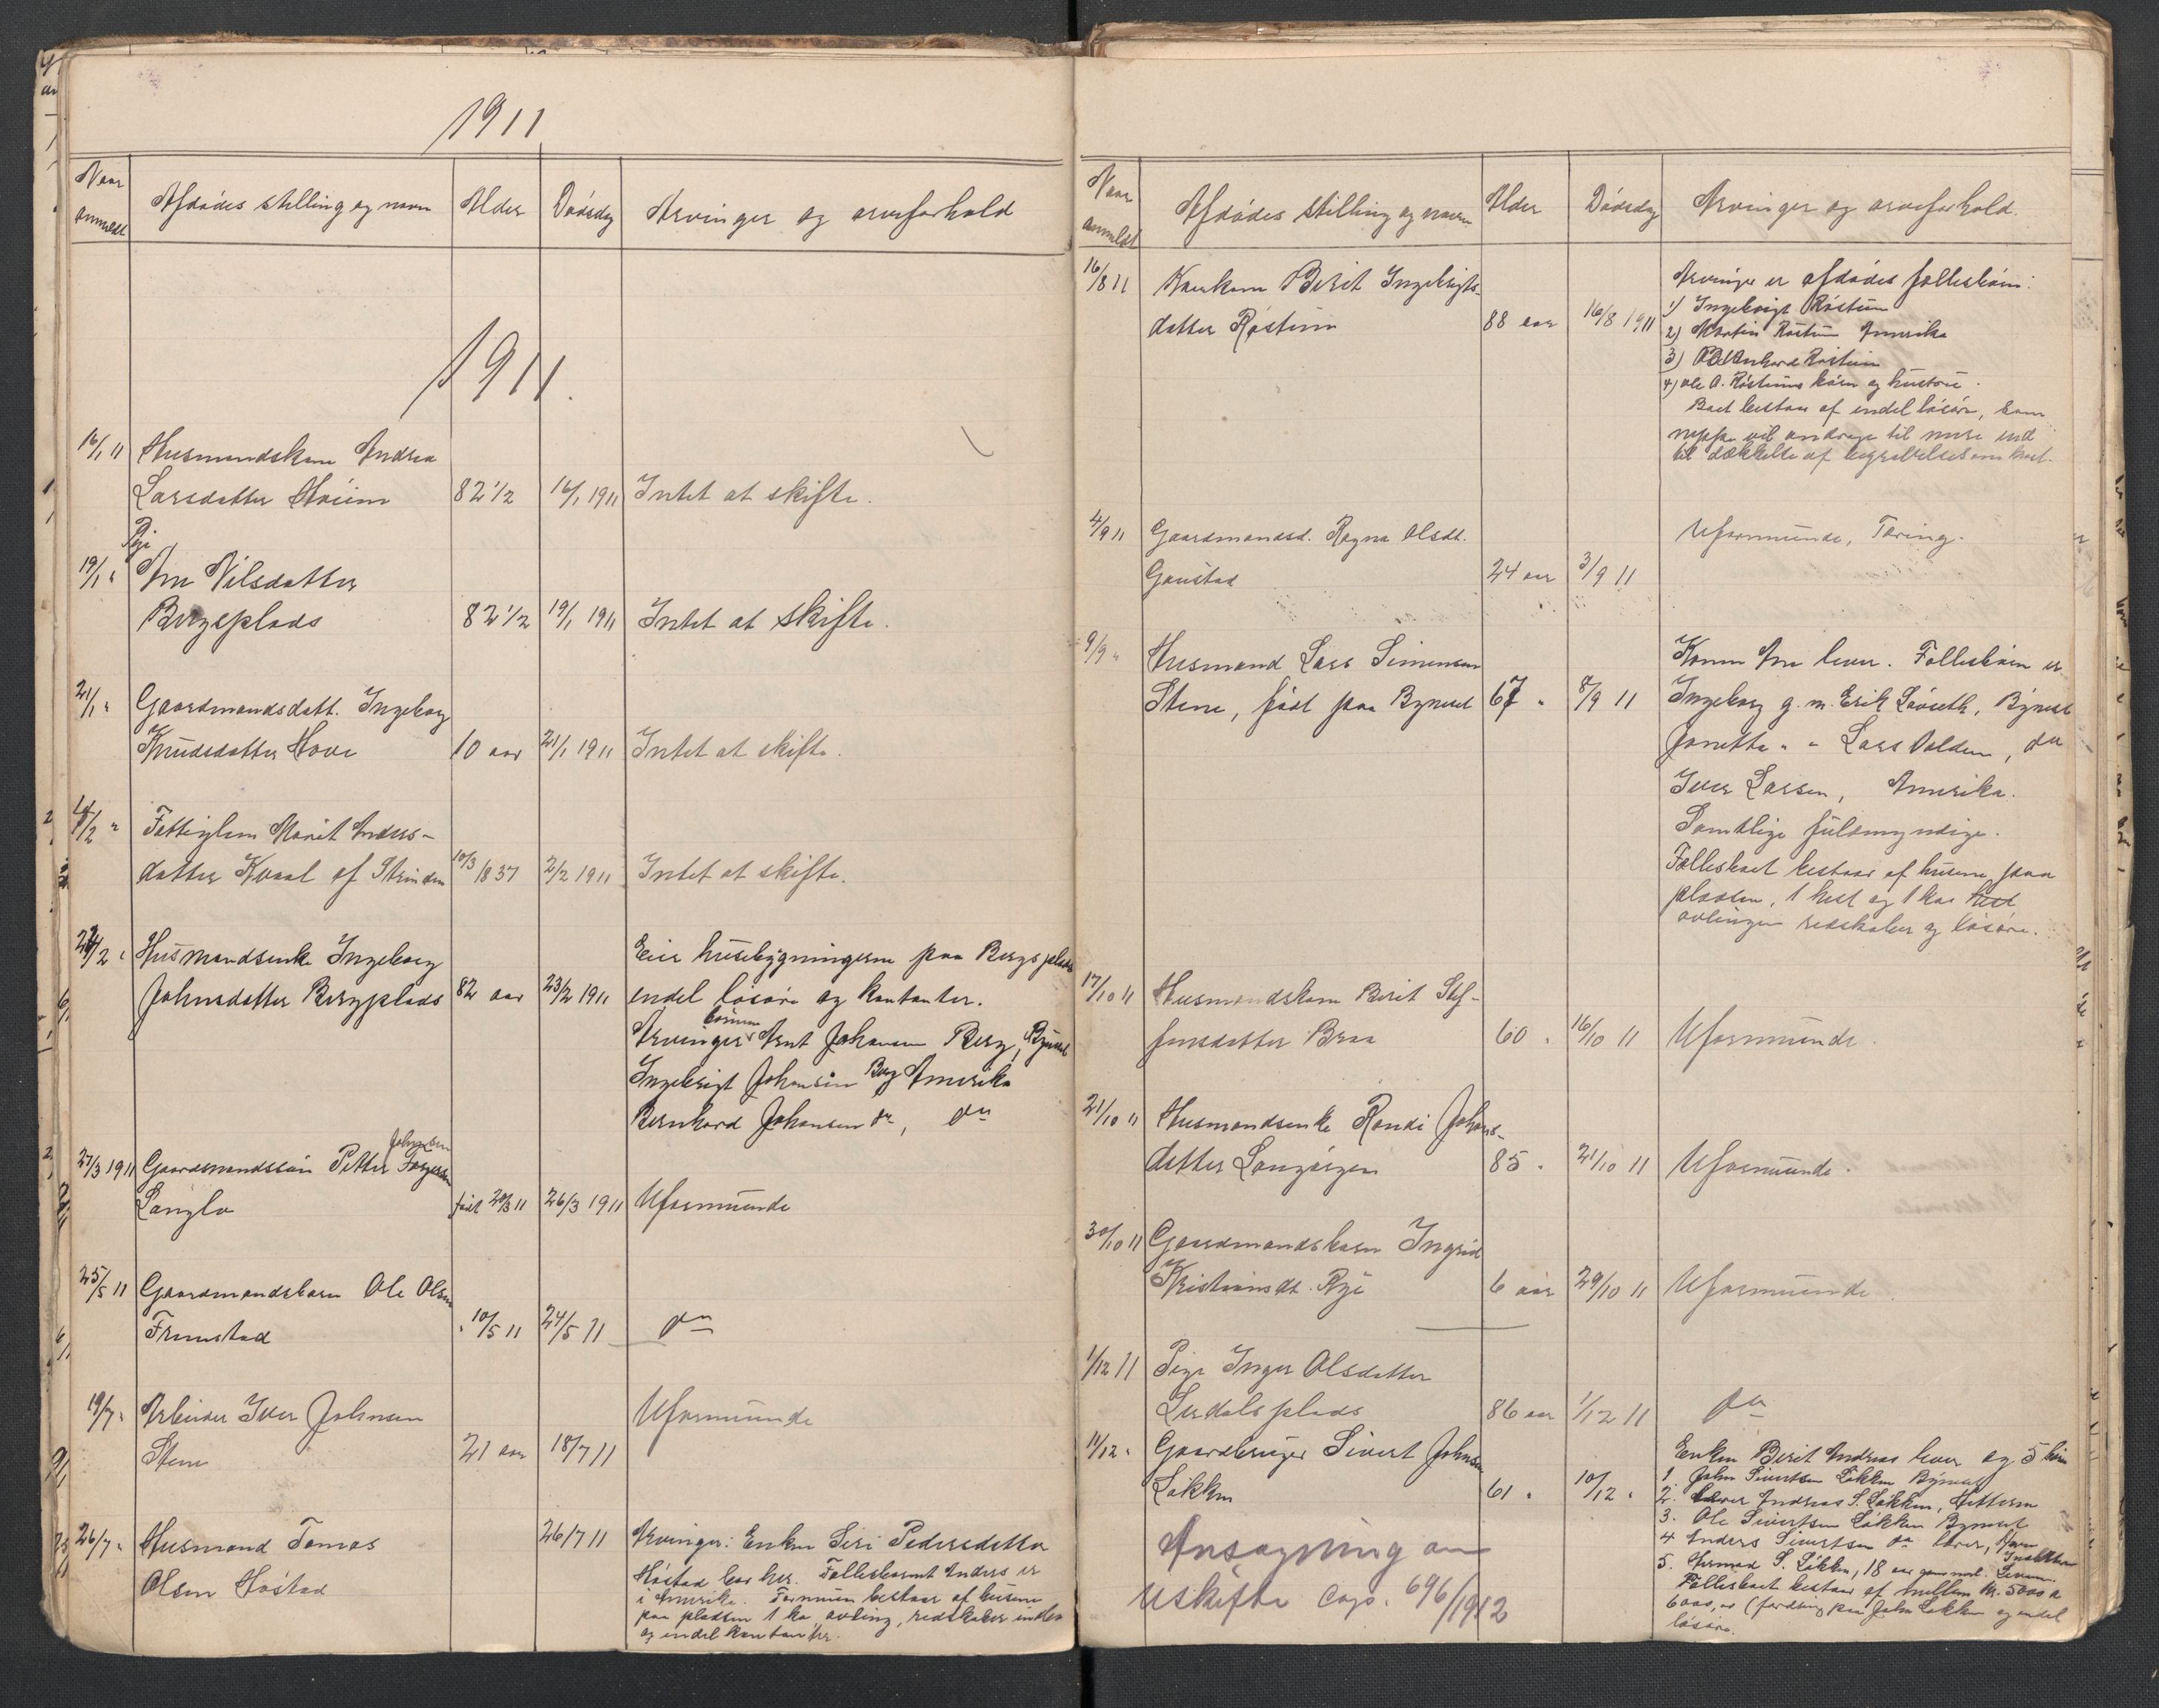 1911
Naar anmeldt
Afdødes stilling og navn
Alder
Dødsdag
Arvinger og arveforhold
1911.
16/1 11 Husmandskone Andrea
Larsdatter Høiem 82 1/2 16/1 1911 Intet at skifte.
Pige
19/1 " Ane Nilsdatter
Bergsplads 82 1/2 19/1 1911 Intet at skifte.
21/1 " Gaardmandsdatt. Ingeborg
Knudsdatter Hove 10 aar 21/1 1911 Intet at skifte.
4/2 " Fattiglem Marit Anders-
datter Kvaal af Strinden 10/3 1837 2/2 1911 Intet at skifte.
24/2 " Husmandsenke Ingeborg Eier husebygningerne paa Bergsplads
Johnsdatter Bergsplads 82 aar 23/2 1911 endel løsøre og kontanter.
børnene
Arvinger Arnt Johansen Berg, Bynes
Ingebrigt Johansen Berg Amerika
Bernhard Johansen do, do
Johnsen
27/3 1911 Gaardmandssøn Petter
Langlo født 20/3 11 26/3 1911 Uformuende
25/5 11 Gaardmandsbarn Ole Olsen
Frumstad " 10/5 11 24/5 11 do
19/7 " Arbeider Iver Johnsen Uformuende
Stene 21 aar 18/7 11
26/7 " Husmand Tomas 26/7 11 Arvinger: Enken Siri Pedersdatter
Olsen Høstad Høstad bor her. Fællesbarnet Anders er
i Amerika. Formuen bestaar af husene
paa pladsen 1 ko, avling, redskaber
og endel kontanter.
Naar anmeldt
Afdødes stilling og navn
Alder
Dødsdag
Arvinger og arveforhold.
16/8 11 Kaarkone Berit Ingebrigts- Arvinger er afdødes fællesbørn:
datter Røstum 88 aar 16/8 1911 1) Ingebrigt Røstum
2) Martin Røstum Amerika
3) Bernhard Røstum
4) Ole A. Røstums børn og hustru.
Boet bestaar af endel løsøre, som
neppe vil andrage til mere end
til dækkelse af begravelsesomkost.
4/9 11 Gaardmandsd. Ragna Olsdt. Uformuende, Tæring.
Gaustad 24 aar 3/9 11
9/9 " Husmand Lars Simensen Konen Ane lever. Fællesbørn er
Stene, født paa Byneset 67 " 8/9 11 Ingeborg g. m. Erik Løvseth, Byneset
Janetta " " Lars Volden, do
Iver Larsen, Amerika.
Samtlige fuldmyndige.
Fællesboet bestaar af husene paa
pladsen, 1 hest og 1 ko
avlingen redskaber og løsøre.
17/10 11 Husmandskone Berit Stef-
fensdatter Braa 60 " 16/10 11 Uformuende.
21/10 11 Husmandsenke Randi Johans-
datter Langørgen 85 " 21/10 11 Uformuende.
30/10 11 Gaardmandsbarn Ingrid
Kristiansdt. Rye 6 aar 29/10 11 Uformuende.
1/12 11 Pige Inger Olsdatter
Lerdalsplads 86 aar 1/12 11 do
11/12 " Gaardbruger Sivert Johnsen Enken Berit Andreas lever og 5 børn
Løkken 61 " 10/12 " 1. John Sivertsen Løkken Byneset
2. Lærer Andreas S. Løkken, Hitteren
3. Ole Sivertsen Løkken Byneset
4 Anders Sivertsen do lærer,
5. S. Løkken, 18 aar gammel.
Fællesboet bestaar af mellem kr. 5000 a
6000, (fordring paa John Løkken og endel
løsøre.
Ansøgning om
uskifte cops. 696/1912